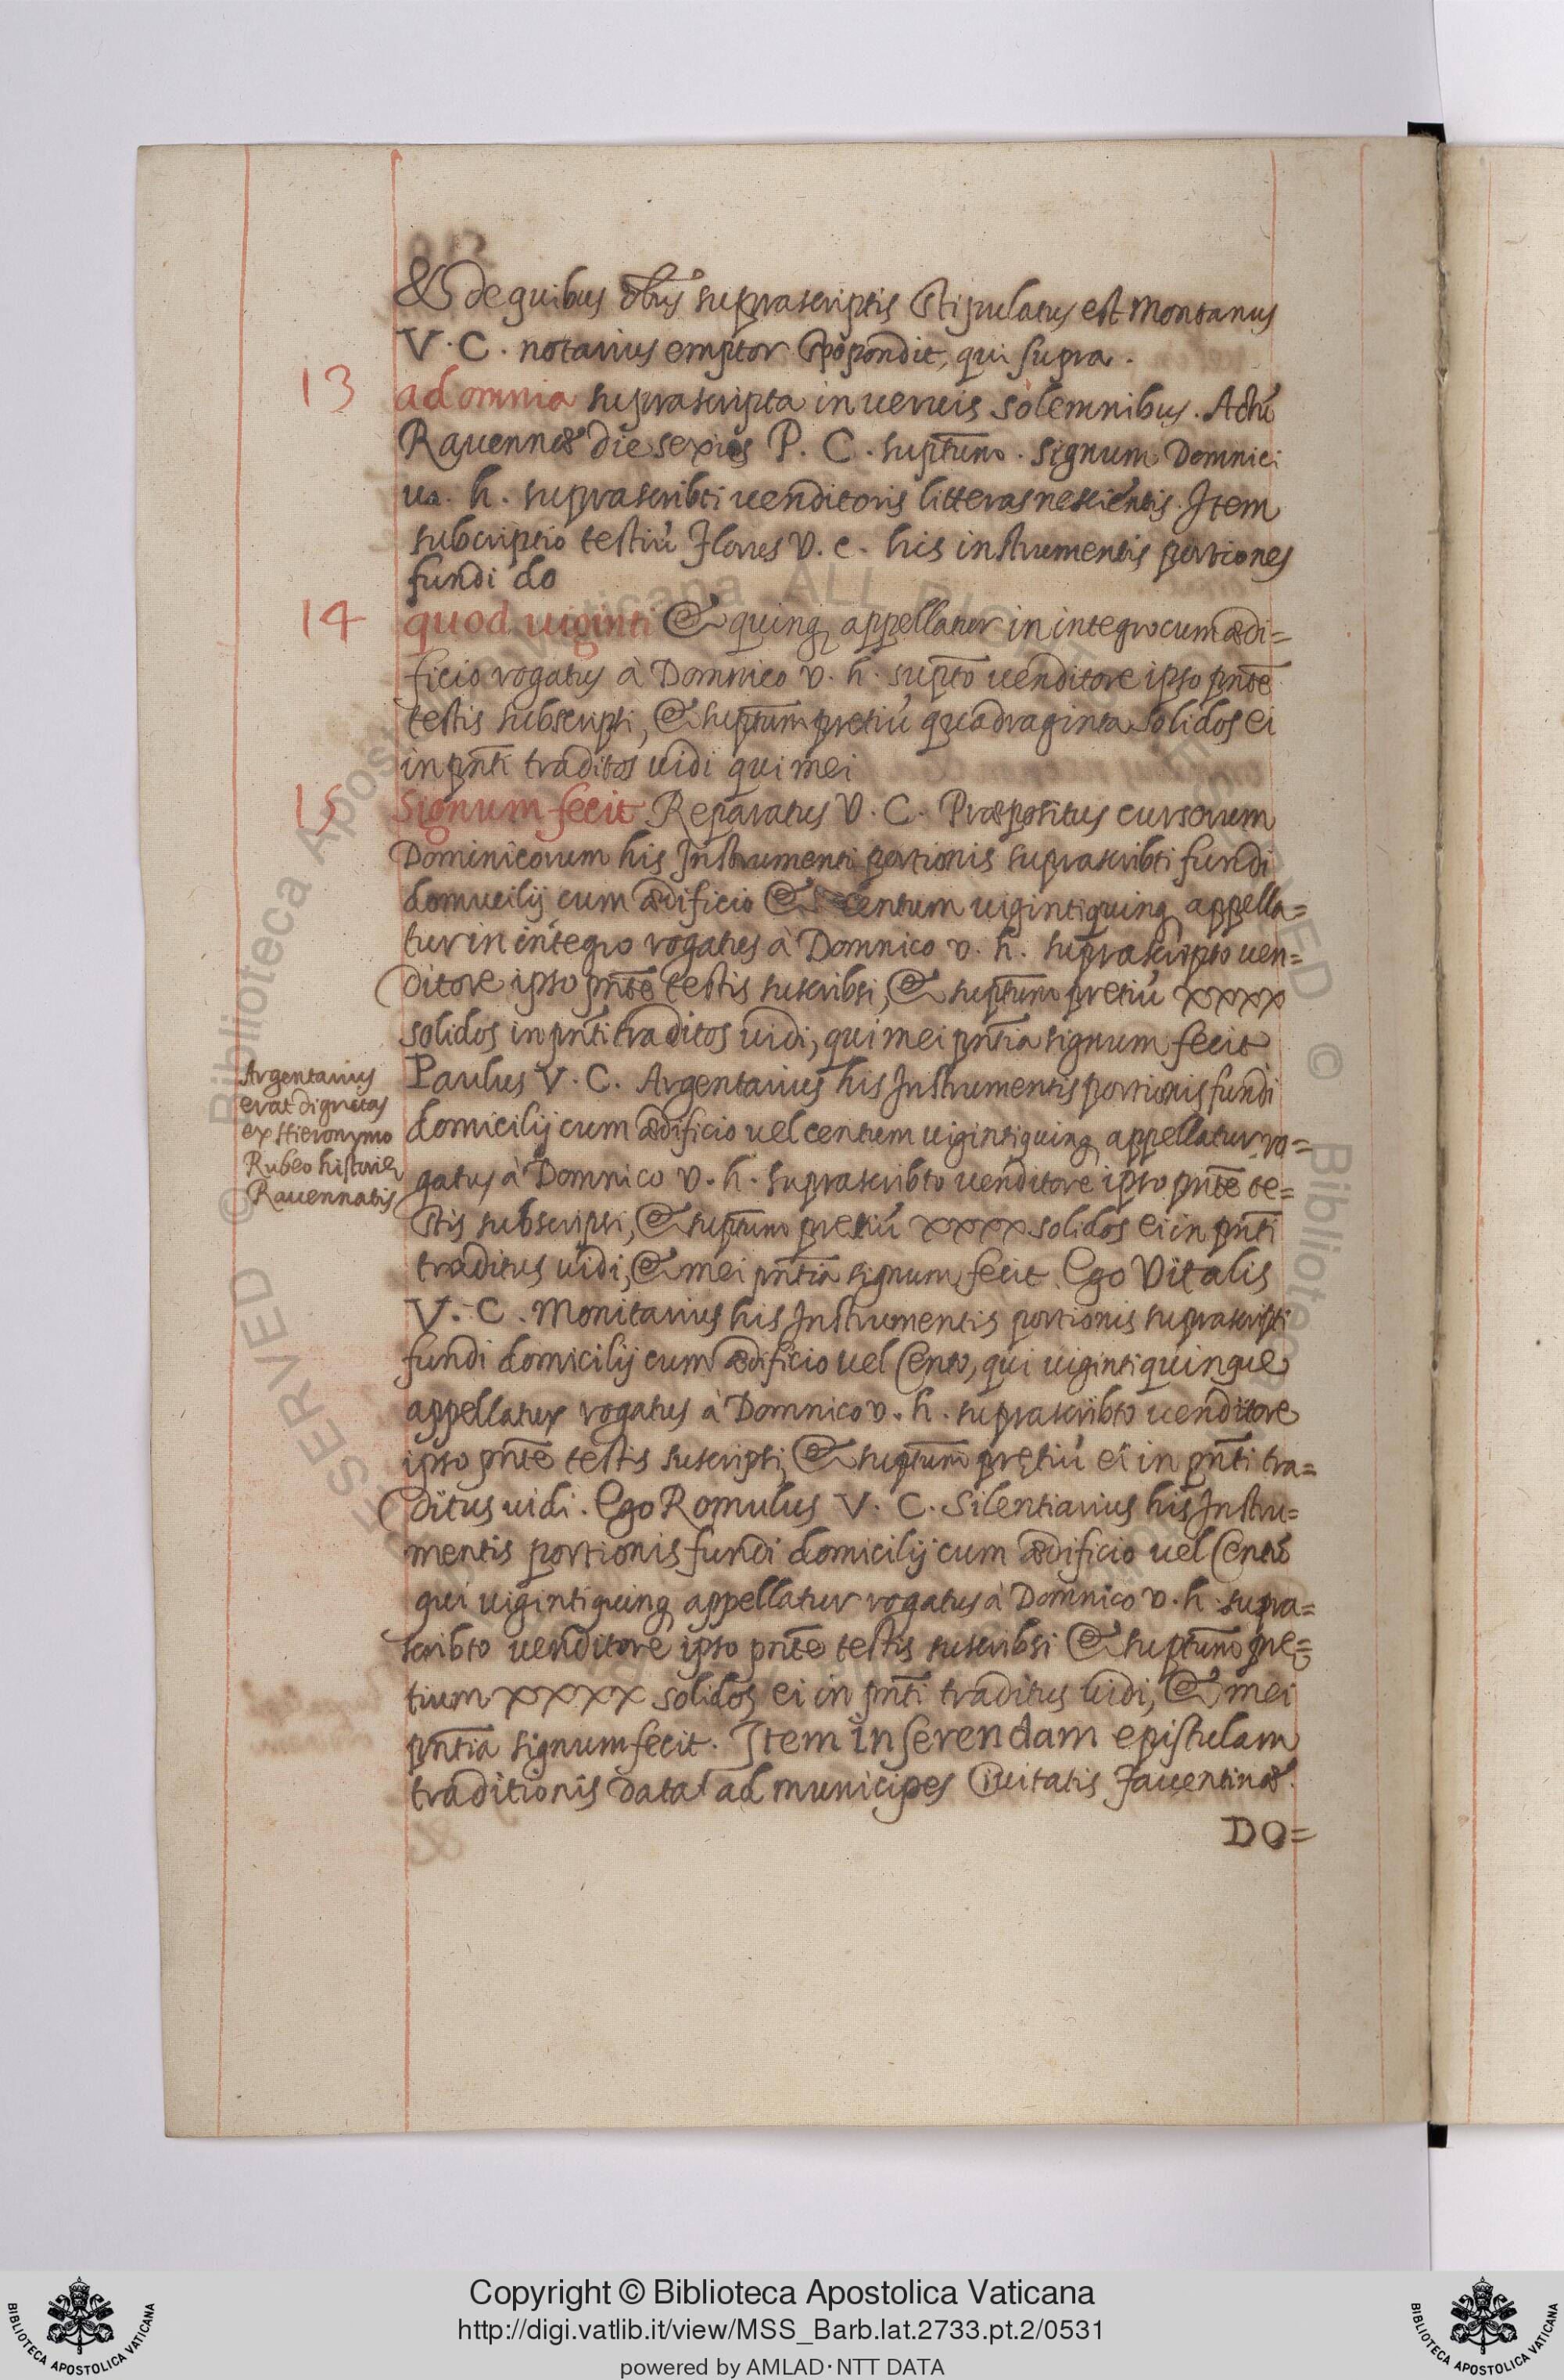 & de quibus oĩbus suprascriptis stipulatus est Montanus
V. C. notarius emptor spopondit, qui supra.
13 ad omnia suprascripta in uerueis solemnibus. Actũ
Rauennæ die sexies P. C. suptũmo. signum Domnici
ua. h. suprascribti uenditoris litteras nescientis. Item
subcriptio testiũ Florus V. c. his instrumentis portiones
fundi do
14 quod uiginti & quinq appellatur in integro cum ædi=
ficio rogatus à Domnico v. h. supto uenditore ipso pñte
testis subscripsi, & suptum pretiũ quadraginta solidos ei
in pñti traditos uidi qui mei
15 Signum fecit Reparatus V. C. Præpositus cursorum
Dominicorum his Instrumenti portionis suprascribti fundi
domucilij cum ædificio & centum uigintiquinq appella=
tur in integro rogatus à Domnico v. h. suprascripto uen=
ditore ipso pñte testis suscribsi, & suptumo pretiũ xxxx
solidos in pñti traditos uidi, qui mei pñtia signum fecit
Paulus V. C. Argentarius his Instrumentis portionis fundi
domicilij cum ædificio uel centum uigintiquinq appellatur ro=
gatus à Domnico v. h. suprascribto uenditore ipso pñte te=
stis subscripsi, & suptumo pretiũ xxxx solidos ei in pñti
traditus uidi, & mei pñtia signum fecit. Ego Vitalis
V. C. Monitarius his Instrumentis portionis suprascripti
fundi domicilij cum ædificio uel Cento, qui uigintiquinque
appellatur rogatus à Domnico v. h. suprascribto uenditore
ipso pñte testis suscripsi, & suptumo pretiũ ei in pñti tra=
ditus uidi. Ego Romulus V. C. Silentiarius his Instru=
mentis portionis fundi domicilij cum ædificio uel Centũ
qui uigintiquinq appellatur rogatus à Domnico v. h. supra=
scribto uenditore ipso pñte testis suscribsi & suptumo pre=
tium xxxx solidos ei in pñti traditus uidi, & mei
pñtia signum fecit. Item inserendam epistulam
traditionis data ad municipes Ciuitatis Fauentinæ.
DO=
Argentarius
erat dignitas
ex Hieronymo
Rubeo historiæ
Rauennatis
© Biblioteca Apostolica Vaticana ALL RIGHTS RESERVED
Copyright © Biblioteca Apostolica Vaticana
http://digi.vatlib.it/view/MSS_Barb.lat.2733.pt.2/0531
powered by AMLAD·NTT DATA
BIBLIOTECA APOSTOLICA VATICANA
BIBLIOTECA APOSTOLICA VATICANA